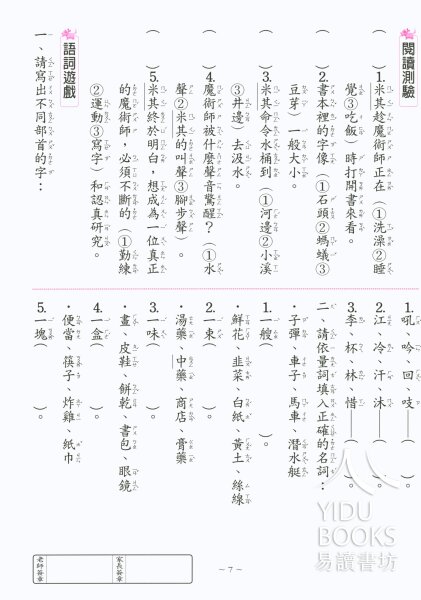 閱讀測驗
(　)1.米其趁魔術師正在(①洗澡②睡
覺③吃飯)時打開書來看。
(　)2.書本裡的字像(①石頭②螞蟻③
豆芽)一般大小。
(　)3.米其命令水桶到(①河邊②小溪
③井邊)去汲水。
(　)4.魔術師被什麼聲音驚醒?(①水
聲②米其的叫聲③腳步聲)。
(　)5.米其終於明白,想成為一位真正
的魔術師,必須不斷的(①勤練
②運動③寫字)和認真研究。
語詞遊戲
一、請寫出不同部首的字:
1.吼、吟、回、吱——(　)。
2.江、冷、汗、沐——(　)。
3.李、杯、林、惜——(　)。
二、請依量詞填入正確的名詞:
・子彈、車子、馬車、潛水艇
1.一艘(　)。
・鮮花、韭菜、白紙、黃土、絲線
2.一束(　)。
・湯藥、中藥、商店、膏藥
3.一味(　)。
・畫、皮鞋、餅乾、書包、眼鏡
4.一盒(　)。
・便當、筷子、炸雞、紙巾
5.一塊(　)。
家長簽章
老師簽章
－7－
YIDU
BOOKS
易讀書坊